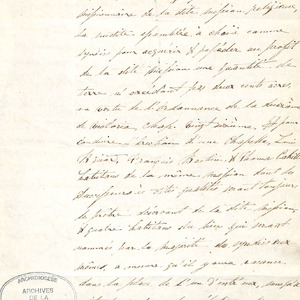 missionnaire de la dite mission religieuse,
la susdite assemblée a choisi comme
syndics pour acquérir & posséder au profit
de la dite Mission une quantité de
terre n'excédant pas deux cents acres,
en vertu de l'ordonnance de la
Victoria, Chap. & pour
construction d'une Chapelle, Louis
François & Thomas Cahill
habitans de la même mission dont les
successeurs à dite qualité seront toujours
le prêtre desservant de la dite mission
& quatre habitans du lieu qui seront
nommés par la majorité des syndics eux
mêmes, à mesure qu'il y aura vacance
dans la place de l'un d'entr'eux, jusqu'à
ARCHIDIOCÈSE
ARCHIVES
DE LA